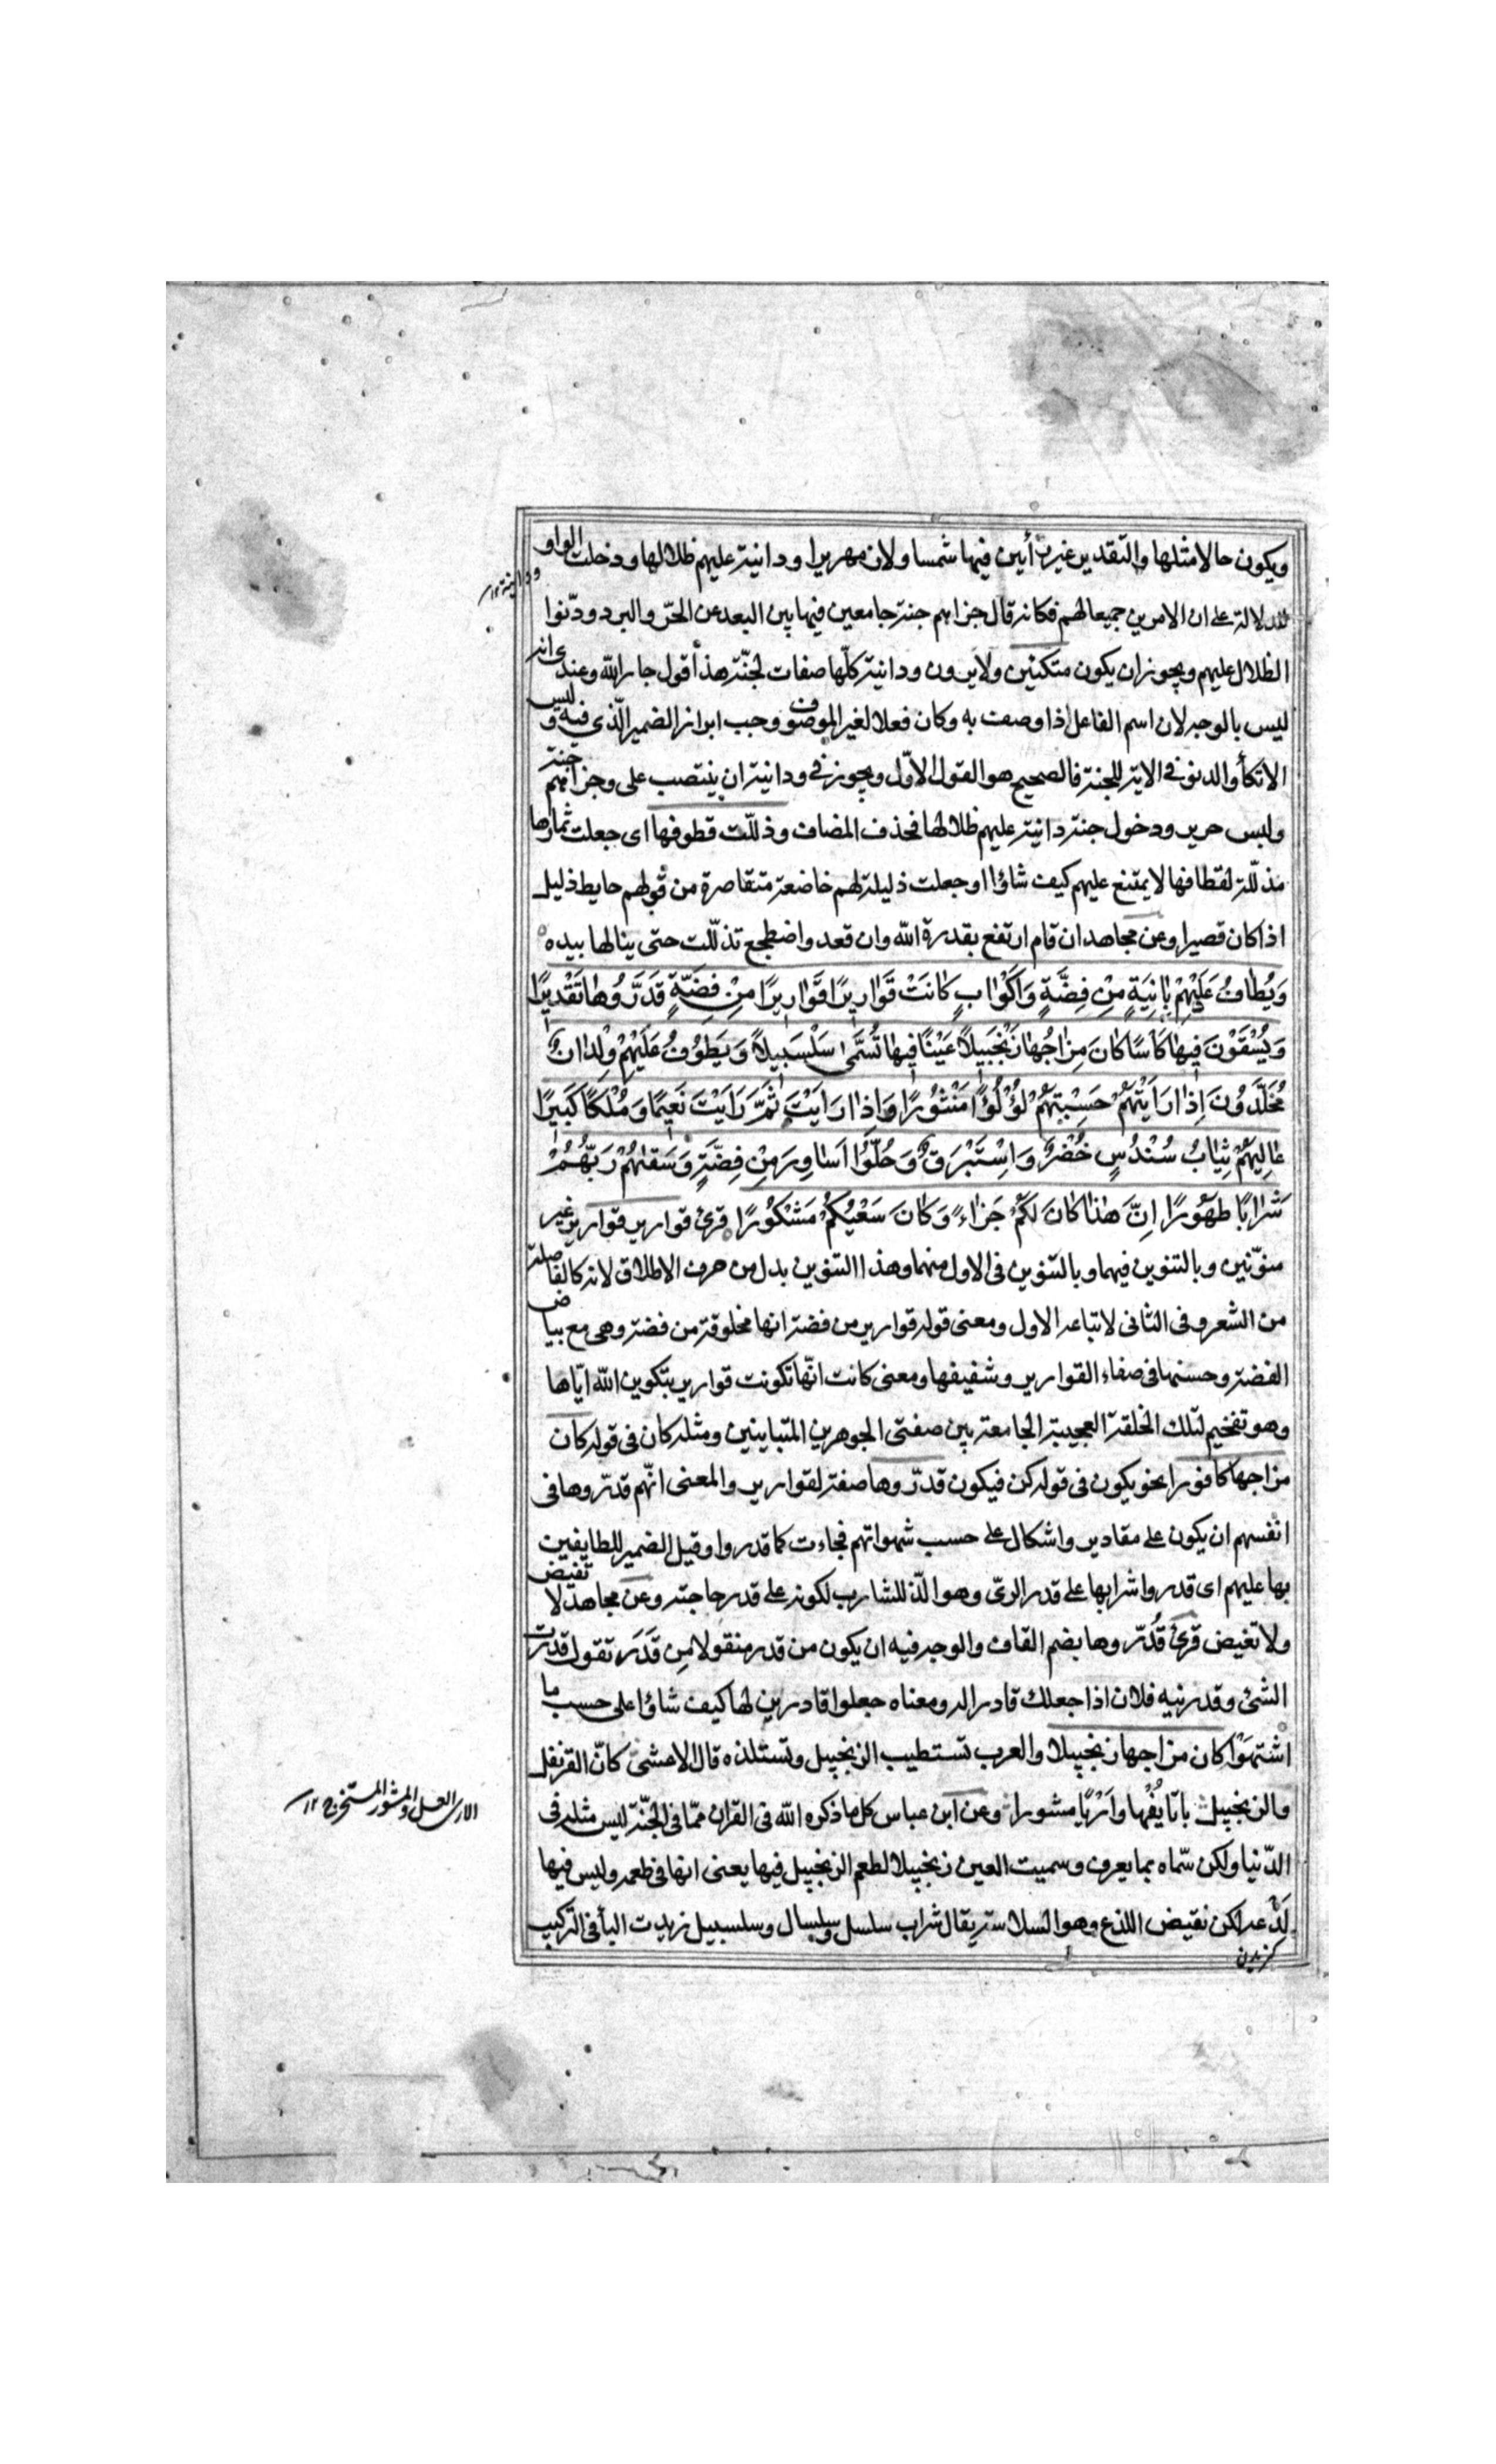 ويكون حالا مثلها والتقدير غير رأيين فيها شمسا ولا زمهريرا ودانية عليهم ظلالها ودخلت الواو
للدلالة على ان الامرين جميعا لهم فكانه قال جزاهم جنة جامعين فيها بين البعد عن الحرّ والبرد ودنّوا
الظلال عليهم ويجوز ان يكون متكئين ولا يرون ودانية كلّها صفات لجنّة هذا قول جار اللّه وعندى انه
ليس بالوجه لان اسم الفاعل اذا وصفت به وكان فعلا لغير الموصوف وجب ابراز الضمير الّذي فيه وليس
الاتكأ والدنو فى الاية للجنة فالصحيح هو القول الاوّل ويجوز فى ودانية ان ينتصب على وجزاهم جنة
ولبس حرير ودخول جنة دانية عليهم ظلالها فحذف المضاف وذلّلت قطوفها اى جعلت ثمارها
مذلّلة لقطافها لا يمتنع عليهم كيف شاؤا او جعلت ذليلة لهم خاضعة متقاصرة من قولهم حايط ذليل
اذا كان قصيرا وعن مجاهد ان قام ارتفع بقدرة اللّه وان قعد واضطجع تذلّلت حتى ينالها بيده
وَيُطَافُ عَلَيْهِمْ بِانِيَةٍ مِنْ فِضَّةٍ وَاَكْوٰابٍ كٰانَتْ قَوٰارِيرًا قَوٰارِيرًا مِنْ فِضَّةٍ قَدَّرُوهٰا تَقْدِيرًا
وَيُسْقَوْنَ فِيهٰا كَاْسًا كٰانَ مِزٰاجُهٰا زَنْجَبِيلًا عَيْنًا فِيهٰا تُسَمّٰى سَلْسَبِيلًا وَيَطُوفُ عَلَيْهِمْ وِلْدٰانٌ
مُخَلَّدُونَ اِذٰا رَاَيْتَهُمْ حَسِبْتَهُمْ لُؤْلُؤًا مَنْثُورًا وَاِذٰا رَاَيْتَ ثَمَّ رَاَيْتَ نَعِيمًا وَمُلْكًا كَبِيرًا
عٰالِيَهُمْ ثِيٰابُ سُنْدُسٍ خُضْرٌ وَاِسْتَبْرَقٌ وَحُلُّوا اَسٰاوِرَ مِنْ فِضَّةٍ وَسَقٰيهُمْ رَبُّهُمْ
شَرٰابًا طَهُورًا اِنَّ هٰذٰا كٰانَ لَكُمْ جَزٰاءً وَكٰانَ سَعْيُكُمْ مَشْكُورًا قرئ قوارير قوارير غير
منوّنين وبالتنوين فيهما وبالتنوين فى الاول منهما وهذا التنوين بدل من حرف الاطلاق لانه كالفاصلة
من الشعر وفى الثانى لاتباعه الاول ومعنى قوله قوارير من فضة انها مخلوقة من فضة وهى مع بياض
الفضة وحسنها فى صفاء القوارير وشفيفها ومعنى كانت انّها تكونت قوارير بتكوين اللّه ايّاها
وهو تفخيم لتلك الخلقة العجيبة الجامعة بين صفتى الجوهرين المتباينين ومثله كان فى قوله كان
مزاجها كافورا نحو يكون فى قوله كن فيكون قدّروها صفة لقوارير والمعنى انّهم قدّروها فى
انفسهم ان يكون على مقادير واشكال على حسب شهواتهم فجاءت كما قدروا وقيل الضمير للطايفين
بها عليهم اى قدروا شرابها على قدر الرىّ وهو الذّ للشارب لكونه على قدر حاجته وعن مجاهد لا تفيض
ولا تغيض قرئ قُدّروها بضم القاف والوجه فيه ان يكون من قدر منقولا من قَدَرَ تقول قدرت
الشئ وقدرنيه فلان اذا جعلك قادرا له ومعناه جعلوا قادرين لها كيف شاؤا على حسب ما
اشتهَوْا كان مزاجها زنجبيلا والعرب تستطيب الزنجبيل وتستلذه قال الاعشى كانّ القرنفل
والزنجبيل باتا بِفُيها وارْيًا مشورا وعن ابن عباس كل ما ذكره اللّه فى القران ممّا فى الجنّة ليس مثله فى
الدّنيا ولكن سّماه بما يعرف وسميت العين زنجبيلا لطعم الزنجبيل فيها يعنى انها فى طعمه وليس فيها
لَذْعه لكن نقيض اللذع وهو السلاسة يقال شراب سلسل وسلسال وسلسبيل زيدت البأ فى التركيب
ودانية ١٢
الارى العسل والمشور المستخرج ١٢
گزيدن